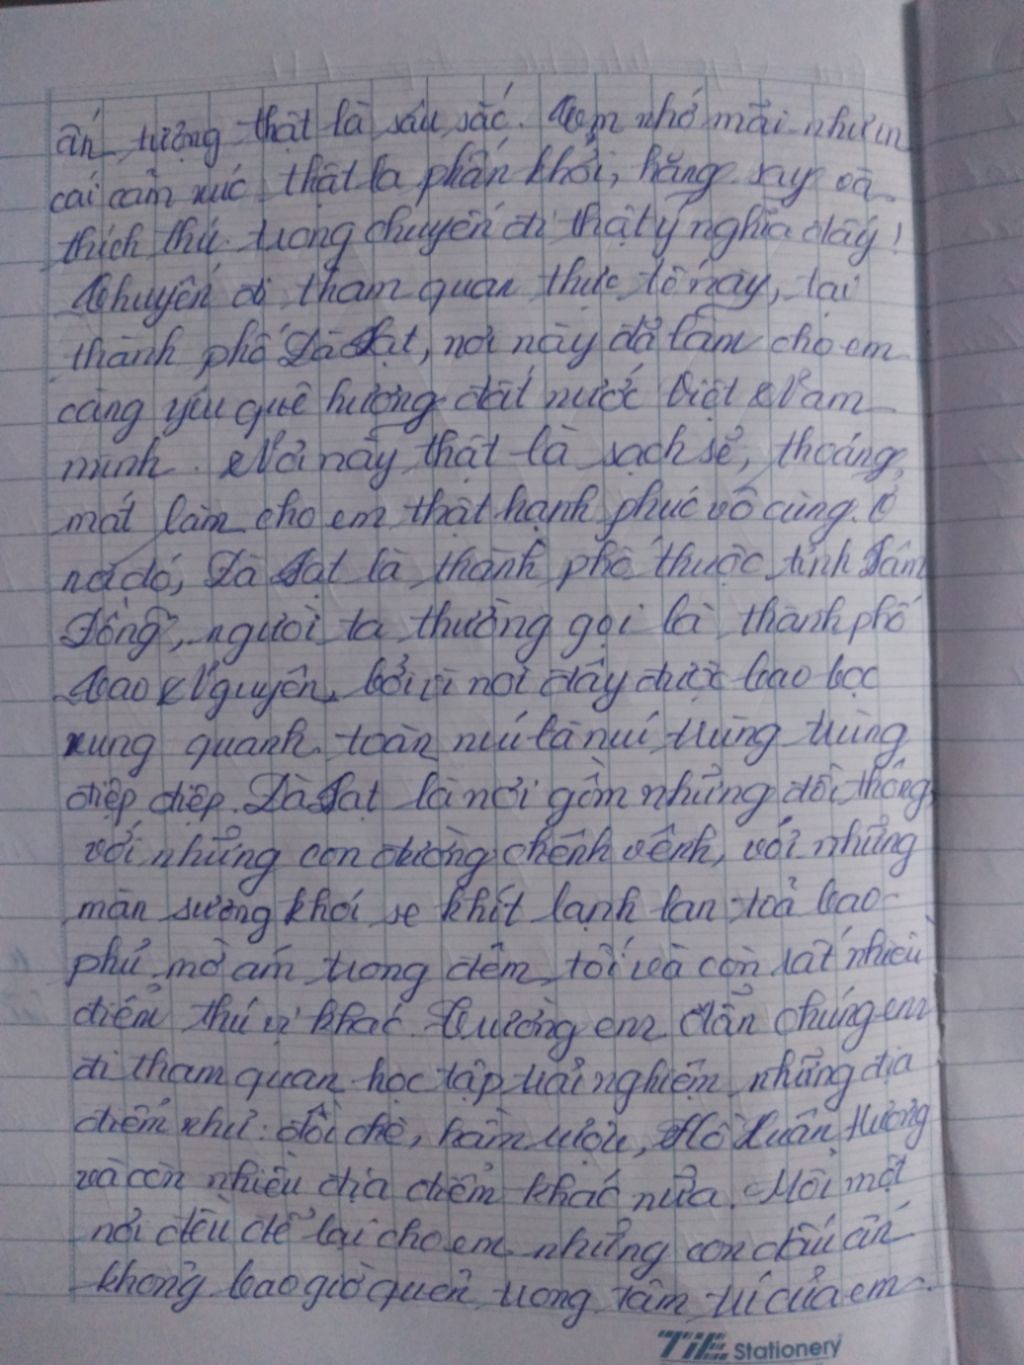 ấn tượng thật là sâu sắc. Còn nhớ mãi như in
cái cảm xúc thật là phấn khởi, hăng say và
thích thú trong chuyến đi thật ý nghĩa đấy!
Chuyến đi tham quan thực tế này, tại
thành phố Đà Lạt, nơi này đã làm cho em
càng yêu quê hương đất nước Việt Nam
mình. Nơi này thật là sạch sẽ, thoáng
mát làm cho em thật hạnh phúc vô cùng. Ở
nơi đó, Đà Lạt là thành phố thuộc tỉnh Lâm
Đồng, người ta thường gọi là thành phố
Cao Nguyên, bởi vì nơi đây được bao bọc
xung quanh toàn núi là núi trùng trùng
điệp điệp. Đà Lạt là nơi gồm những đồi thông,
với những con đường chênh vênh, với những
màn sương khói se khít lạnh lan toả bao
phủ mờ ám trong đêm tối và còn rất nhiều
điểm thú vị khác. Trường em dẫn chúng em
đi tham quan học tập trải nghiệm những địa
điểm như: đồi chè, hầm rượu, Hồ Xuân Hương
và còn nhiều địa điểm khác nữa. Mỗi một
nơi đều để lại cho em những con dấu ấn
không bao giờ quên trong tâm trí của em.
TiE Stationery